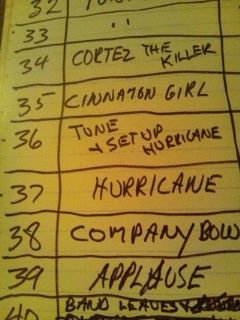 32
33 " "
34 CORTEZ THE
KILLER
35 CINNAMON GIRL
36 TUNE
+ SET UP
HURRICANE
37 HURRICANE
38 COMPANY BOW
39 APPLAUSE
40 BAND LEAVES